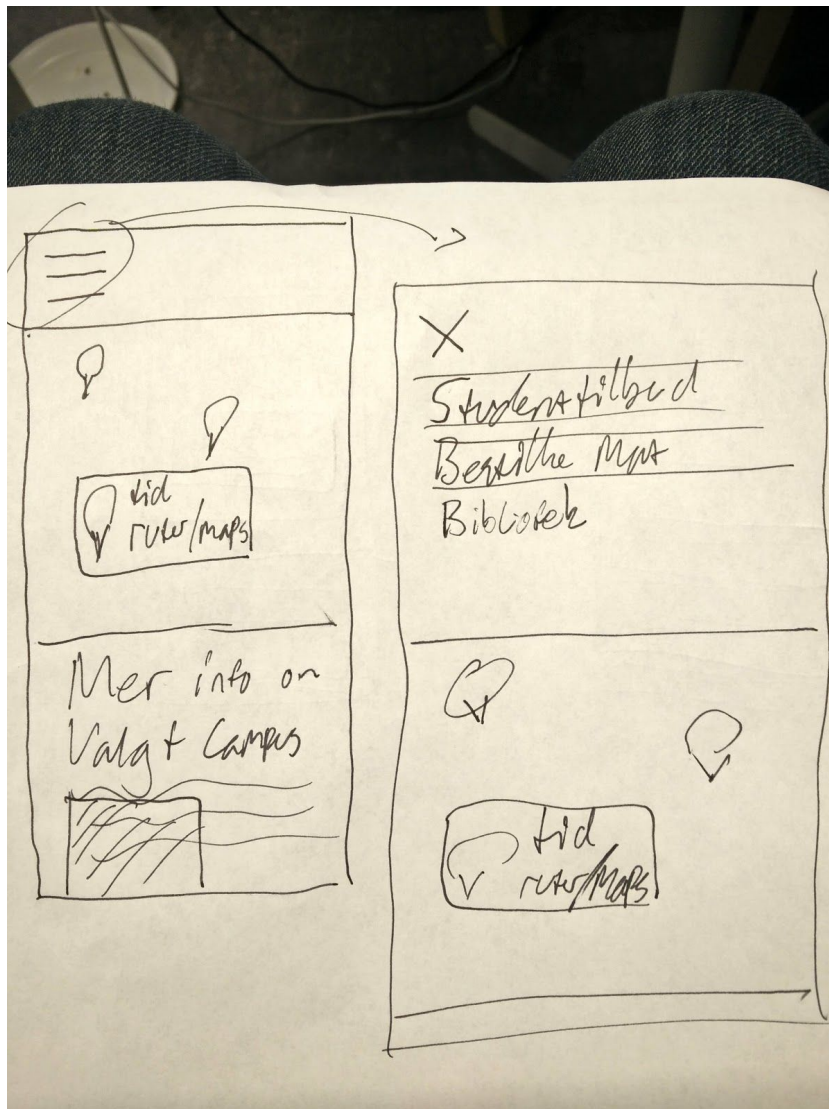 tid
ruter/maps
Mer info om
Valgt Campus
X
Studenttilbud
Bestille Mat
Bibliotek
tid
ruter/Maps